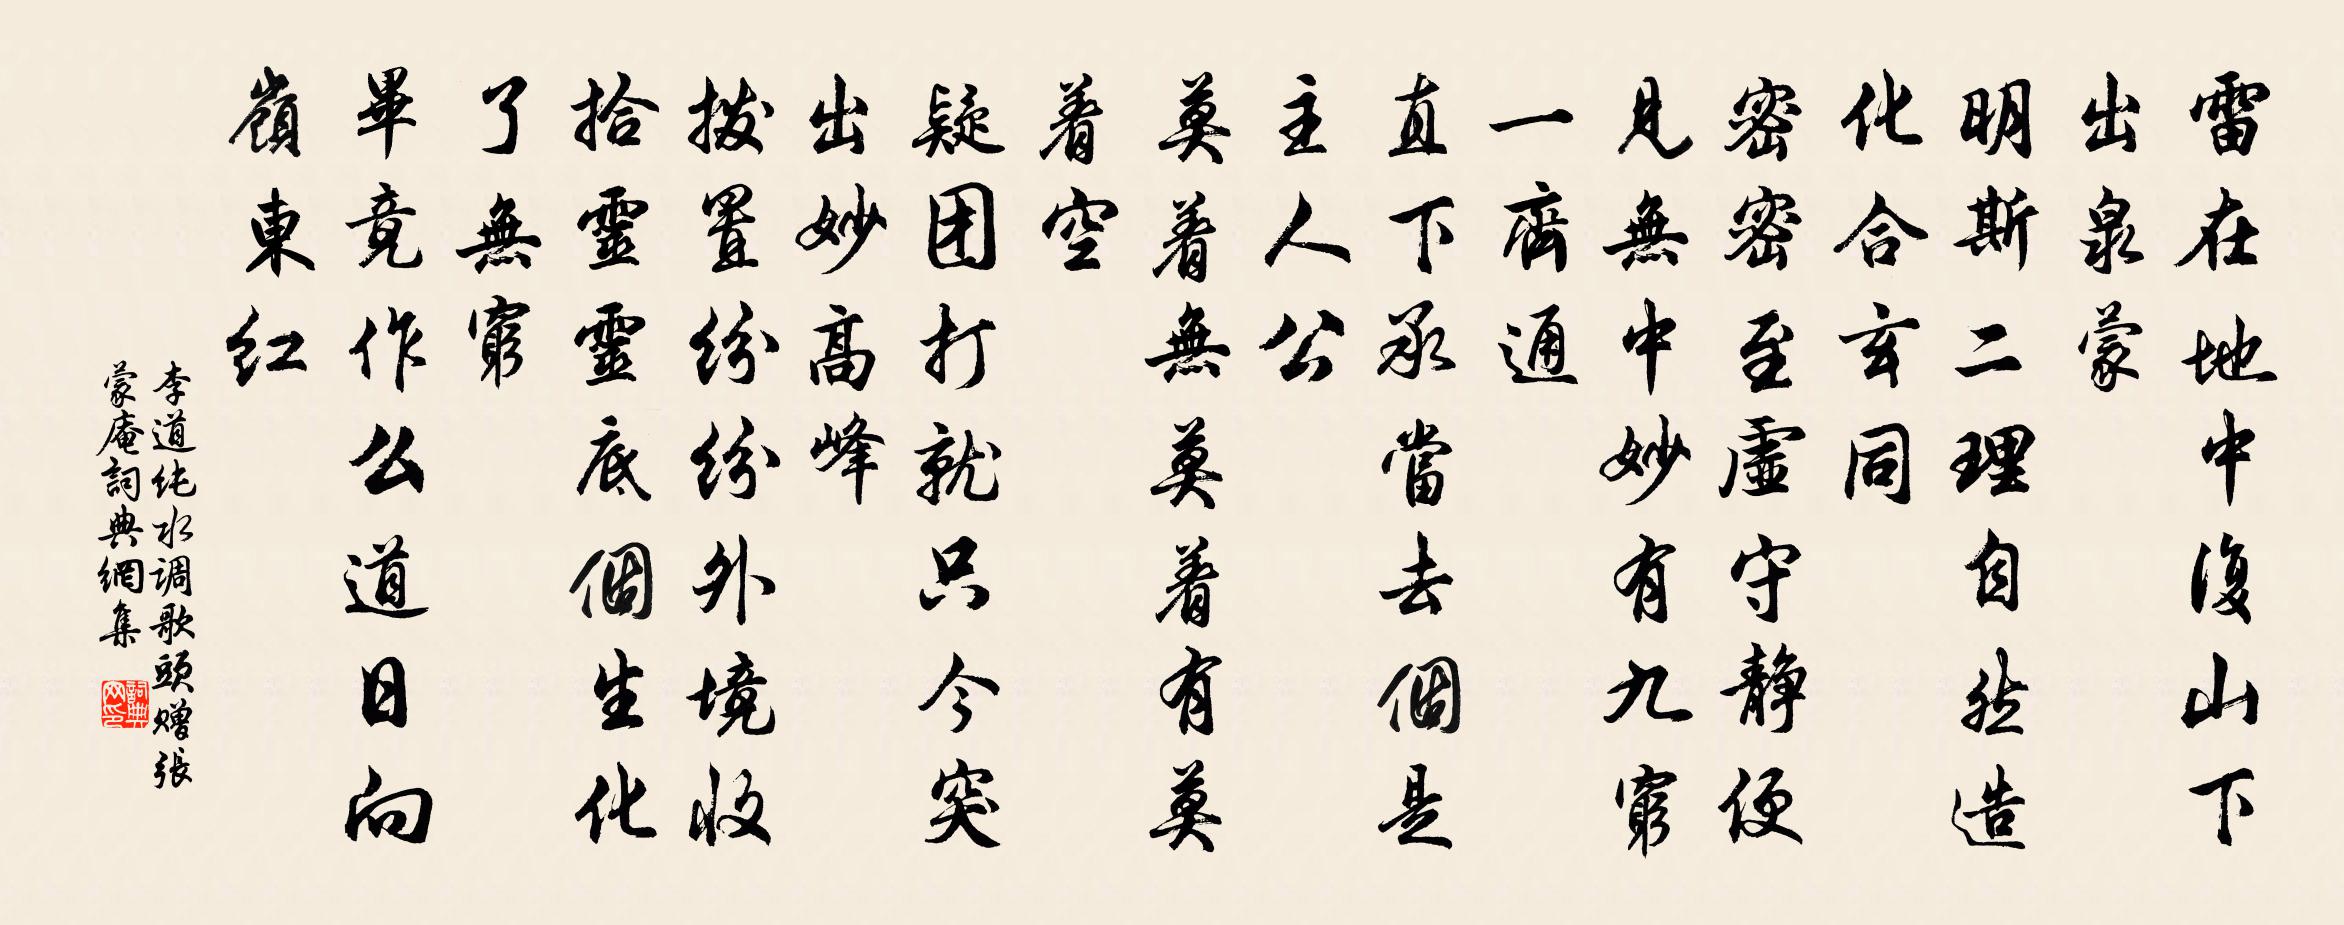 雷在地中復山下
出泉蒙
明斯二理自然造
化合玄同
密密至虛守静便
見無中妙有九窮
一齊通
直下承當去個是
主人公
莫着無莫着有莫
着空
疑团打就只今突
出妙高峰
撥置紛紛外境收
拾靈靈底個生化
了無窮
畢竟作么道日向
嶺東红
李道纯水调歌頭赠張
蒙庵詞典網集
詞典
网印